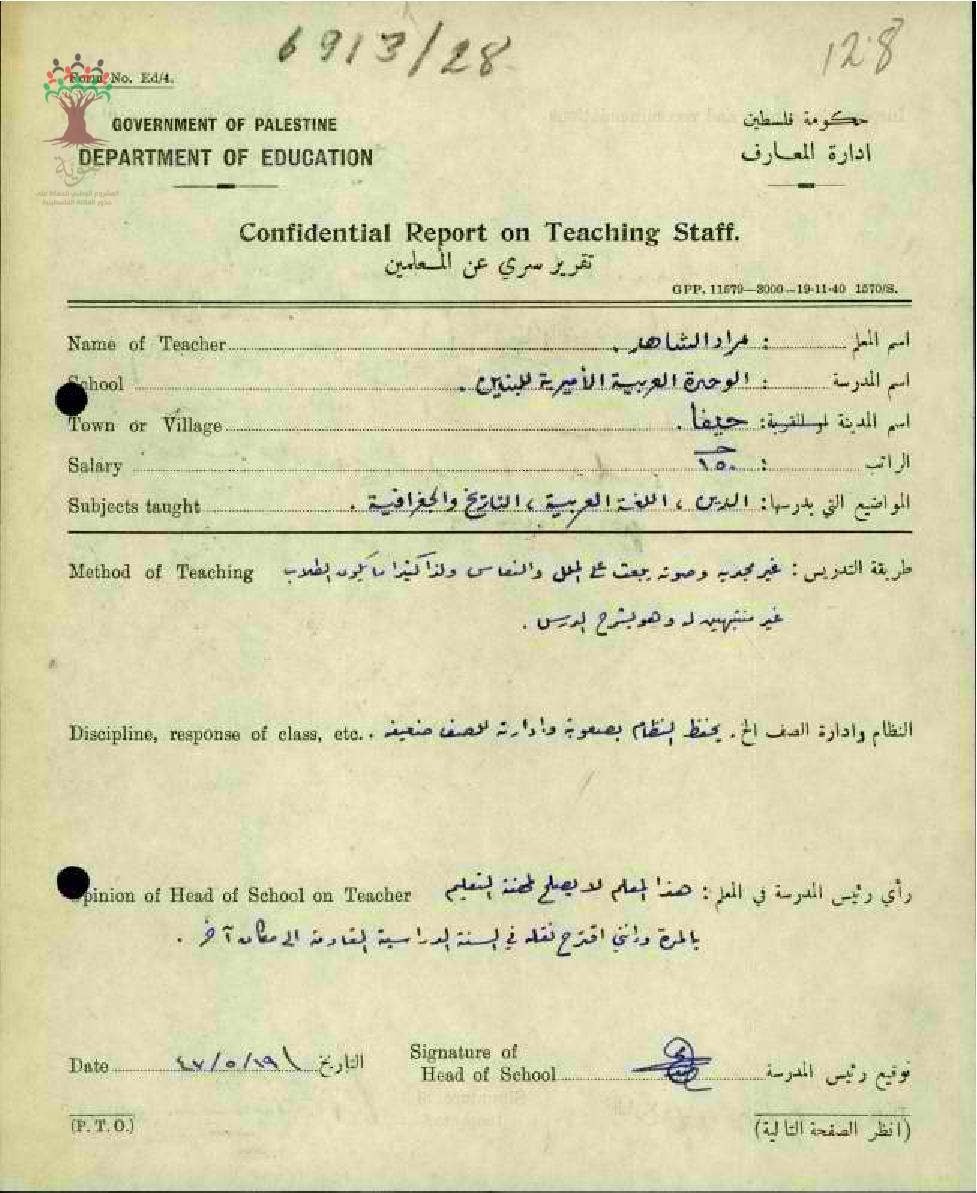 6913/28
128
Form No. Ed/4.
GOVERNMENT OF PALESTINE
حكومة فلسطين
DEPARTMENT OF EDUCATION
ادارة المعارف
هوية
المشروع الوطني للحفاظ على
جذور العائلة الفلسطينية
Confidential Report on Teaching Staff.
تقرير سري عن المعلمين
GPP. 11579—3000—19-11-40 1570/S.
Name of Teacher اسم المعلم : مراد الشاهر .
School اسم المدرسة : الوحدة العربية الأميرية للبنين .
Town or Village اسم المدينة او القرية: حيفا .
Salary الراتب : ١٥٠
Subjects taught المواضيع التي يدرسها: الدين ، اللغة العربية ، التاريخ والجغرافية .
Method of Teaching طريقة التدريس : غير مجدية وصوته يبعث على الملل والنعاس ولذا كثيرا ما يكون الطلاب
غير منتبهين له وهو يشرح الدرس .
Discipline, response of class, etc.. النظام وادارة الصف الخ. يحفظ النظام بصعوبة وادارته للصف ضعيفة
Opinion of Head of School on Teacher رأي رئيس المدرسة في المعلم : هذا المعلم لا يصلح لمهنة التعليم
بالمرة وانني اقترح نقله في السنة الدراسية القادمة الى مكان آخر .
Date التاريخ ١٩/٥/٤٧
Signature of
Head of School توقيع رئيس المدرسة
(P. T. O.)
(انظر الصفحة التالية)